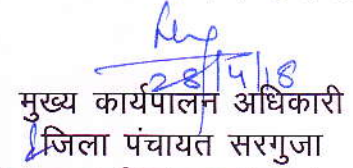 28/4/18
मुख्य कार्यपालन अधिकारी
जिला पंचायत सरगुजा